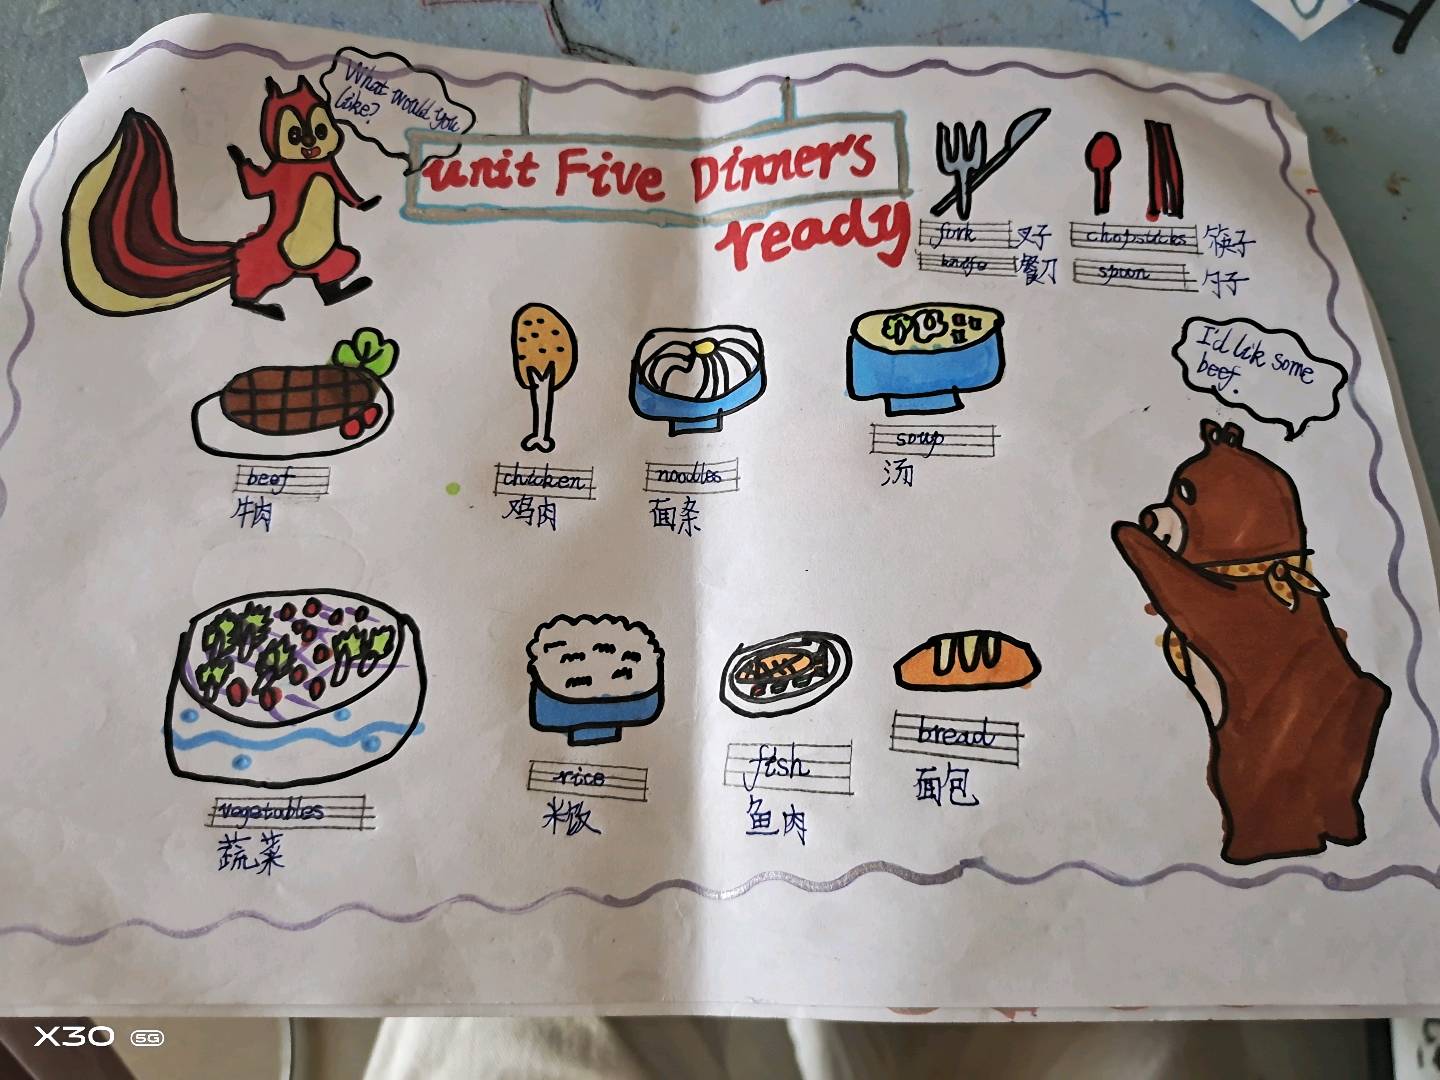 What would you
like?
unit Five Dinner's
ready
fork 叉子
knife 餐刀
chopsticks 筷子
spoon 勺子
I'd lik some
beef.
beef
牛肉
chicken
鸡肉
noodles
面条
soup
汤
vegetables
蔬菜
rice
米饭
fish
鱼肉
bread
面包
X30 5G